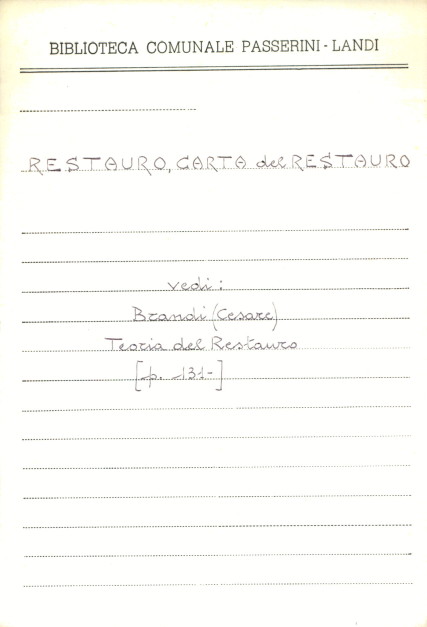 BIBLIOTECA COMUNALE PASSERINI - LANDI
RESTAURO, CARTA del RESTAURO
vedi:
Brandi (Cesare)
Teoria del Restauro
[p. 131-]